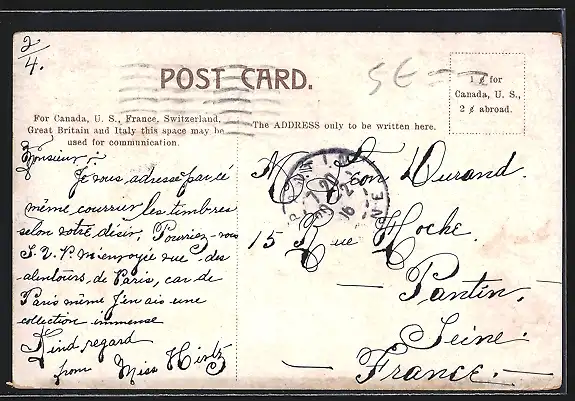 2/4.
POST CARD.
5 E
1 ¢ for
Canada, U. S.,
2 ¢ abroad.
For Canada, U. S., France, Switzerland,
Great Britain and Italy this space may be
used for communication.
The ADDRESS only to be written here.
Monsieur :
Je vous adresse par le
même courrier les timbres
selon votre désir, Pourriez-vous
S. V. P. m'envoyée vue des
alentours de Paris, car de
Paris même j'en ais une
collection immense
Kind regard
from Miss Hintz
M Léon Durand.
15 Rue Hoche.
Pantin,
Seine.
France.